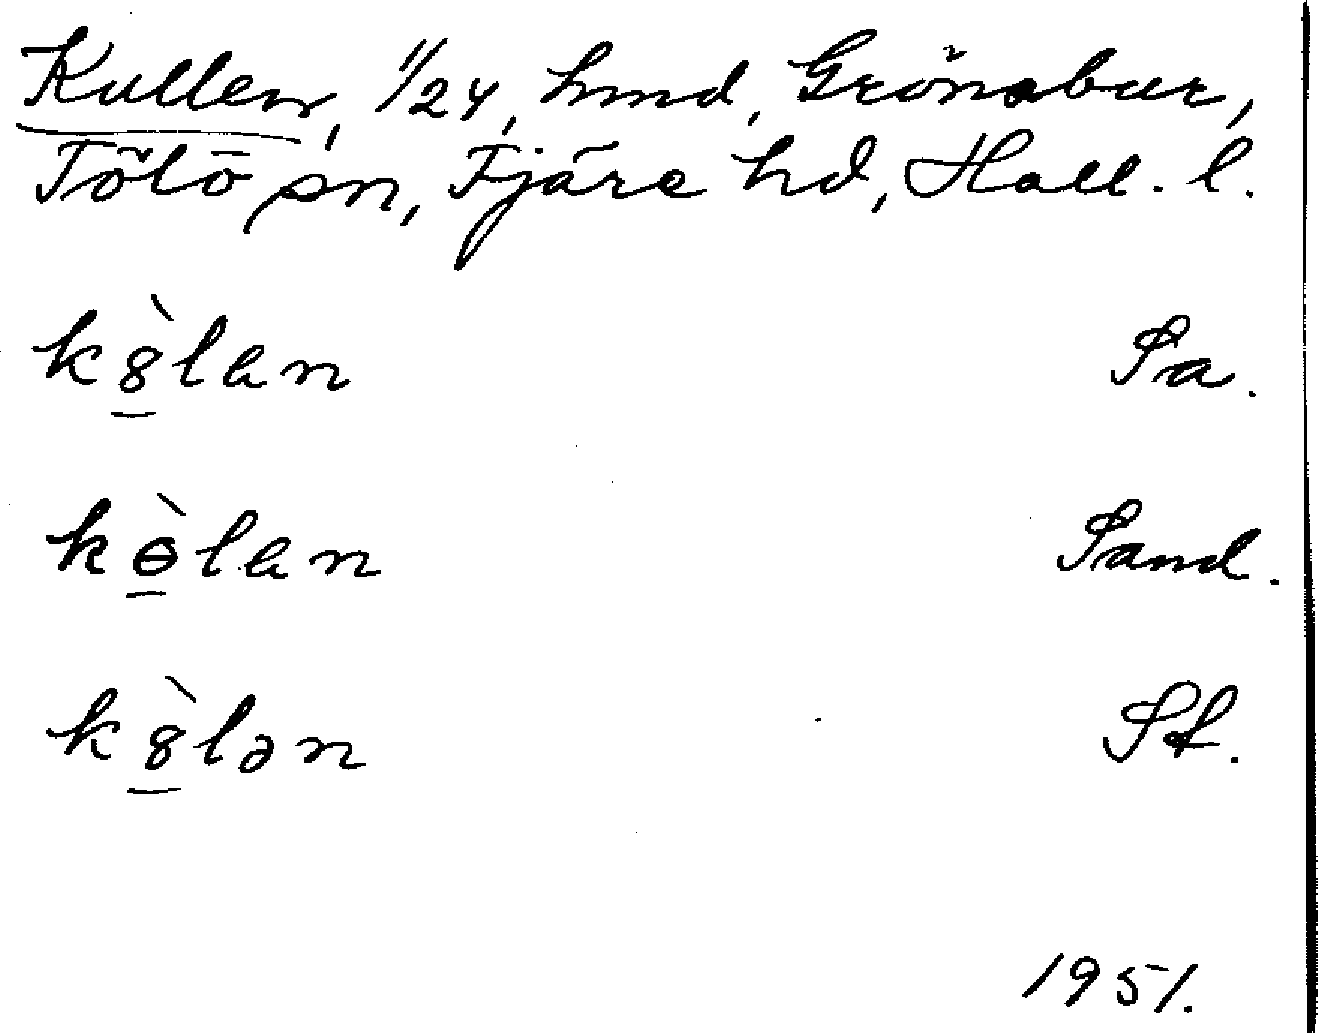 Kullen, 11/24, hmd, Grönabur,
Tölö sn, Fjäre hd, Hall. l.
kı̀8̲lan Sa.
kɵ̲̀lan Sand.
k8̲̀lən St.
1951.